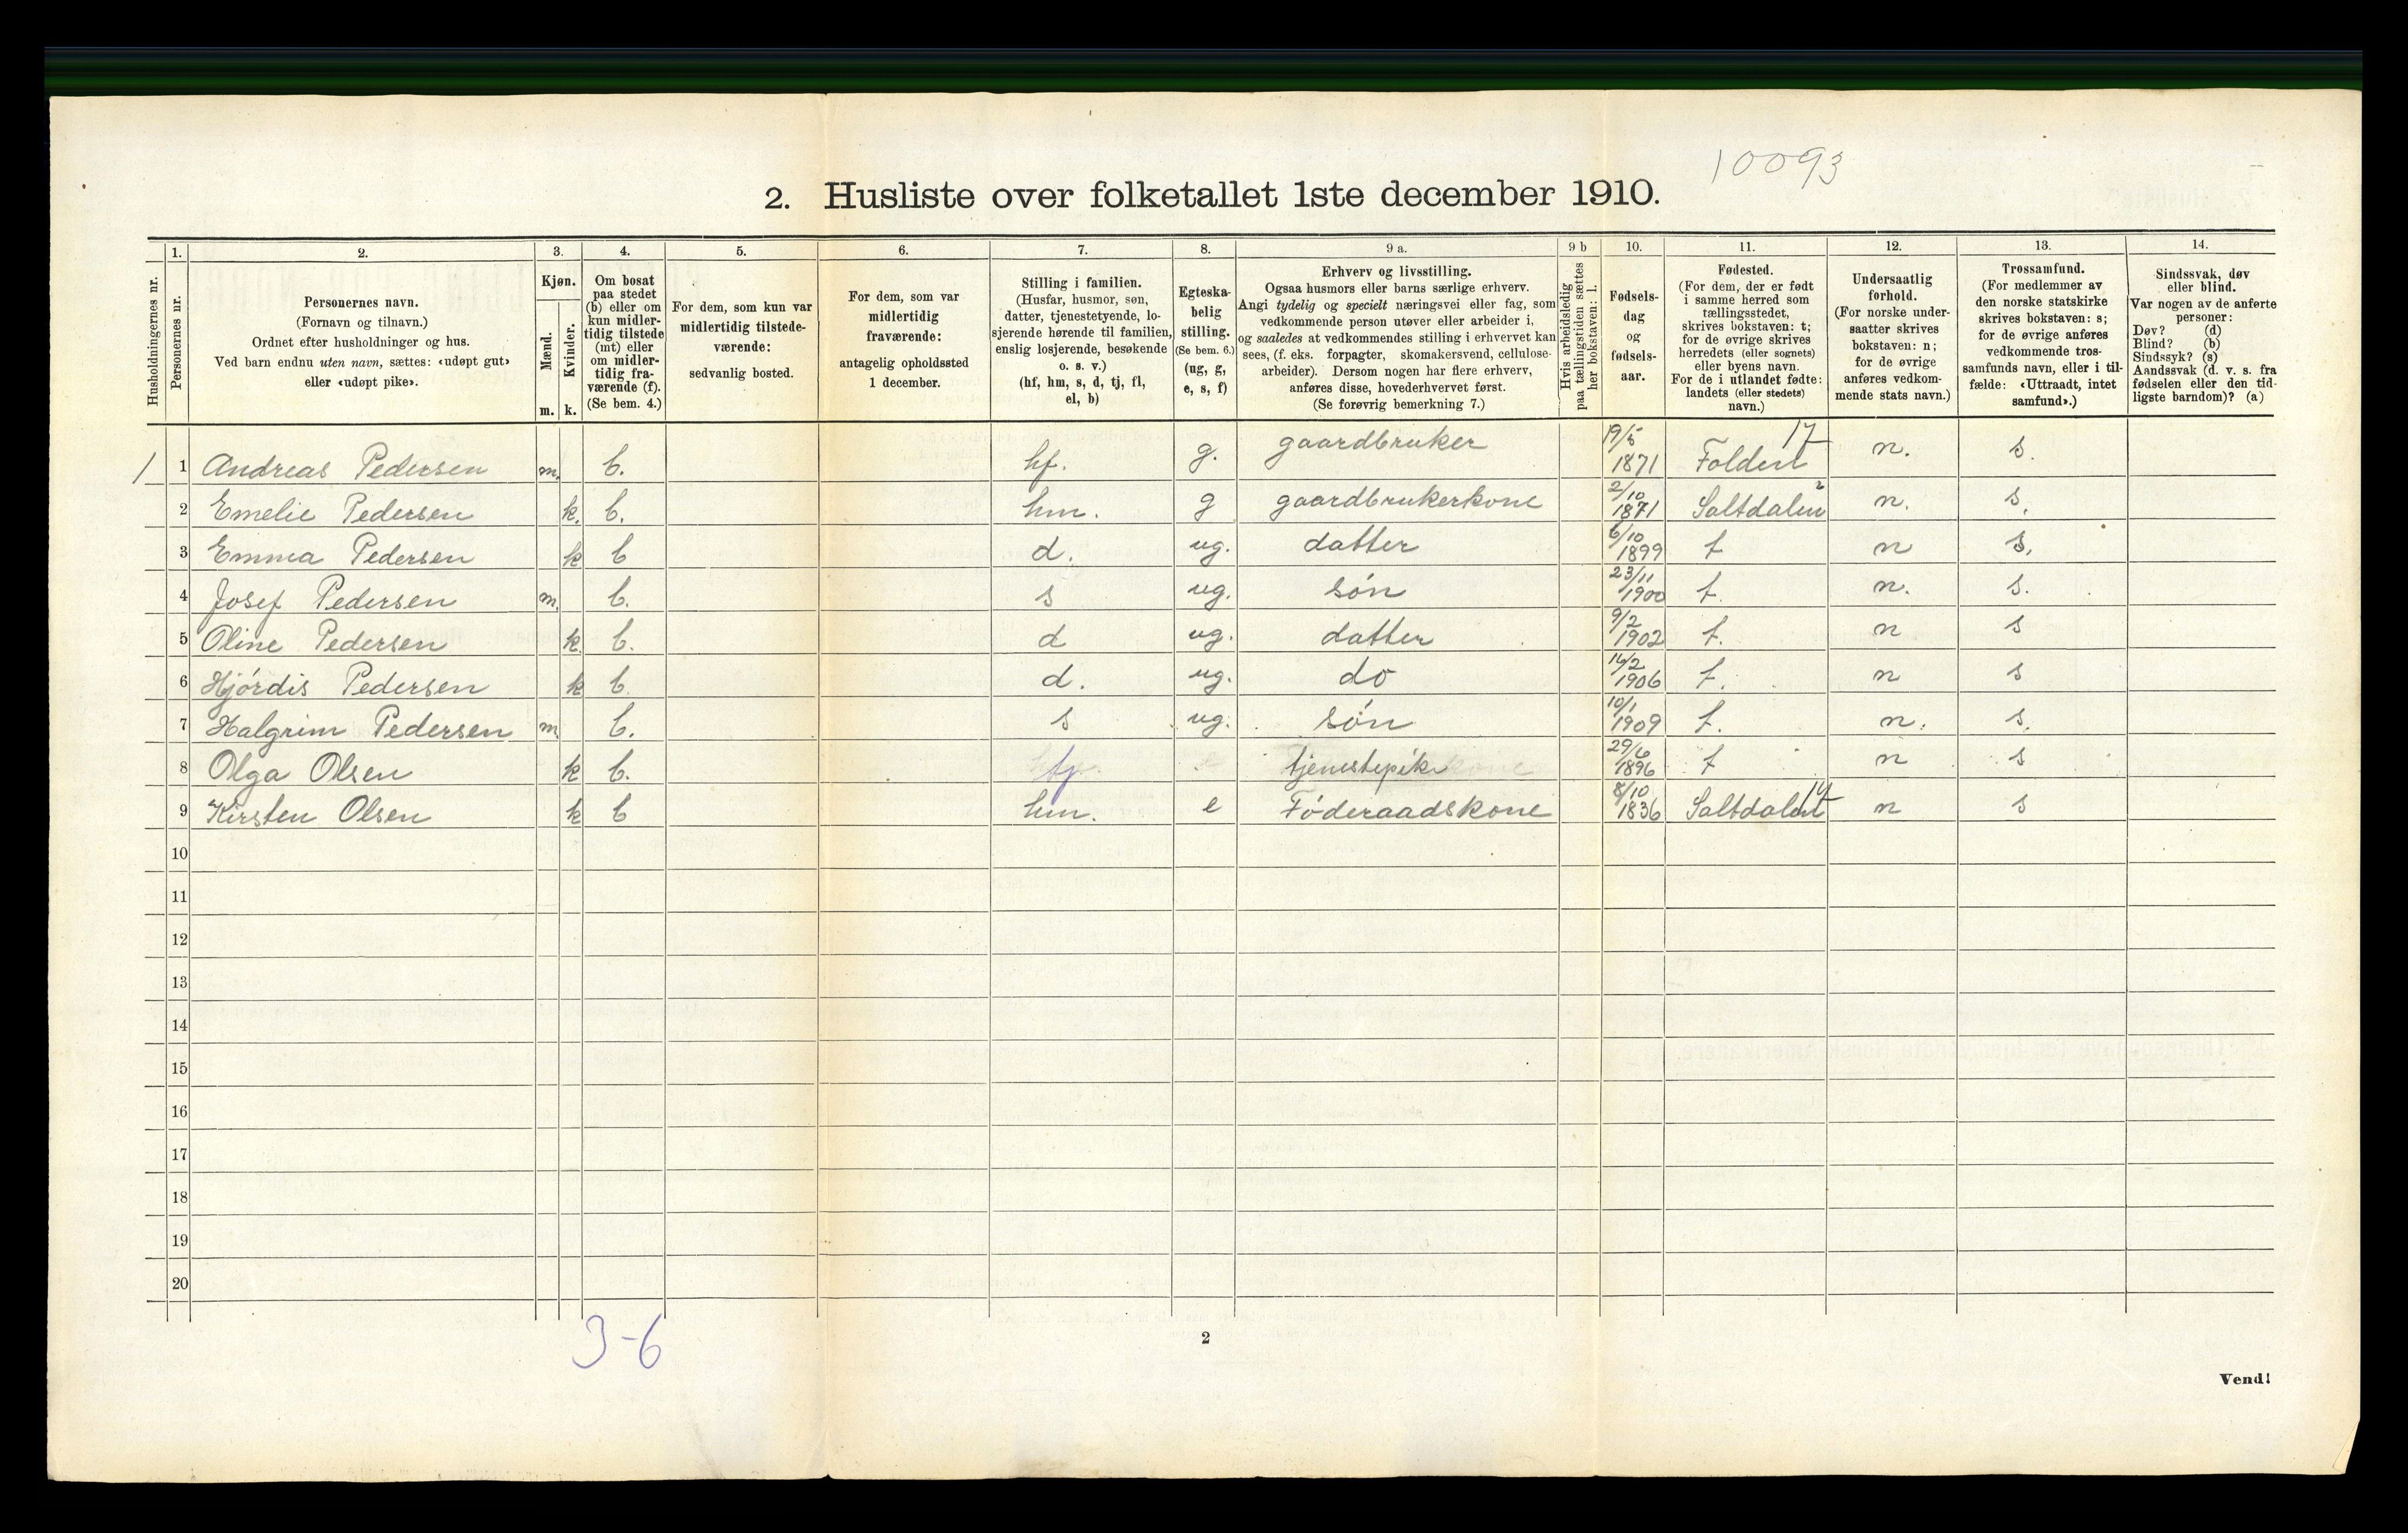 10093
2. Husliste over folketallet 1ste december 1910.
Husholdningernes nr.
1. Personernes nr.
2. Personernes navn. (Fornavn og tilnavn.) Ordnet efter husholdninger og hus. Ved barn endnu uten navn, sættes: «udøpt gut» eller «udøpt pike».
3. Kjøn. Mænd. m. Kvinder. k.
4. Om bosat paa stedet (b) eller om kun midlertidig tilstede (mt) eller om midlertidig fraværende (f). (Se bem. 4.)
5. For dem, som kun var midlertidig tilstedeværende: sedvanlig bosted.
6. For dem, som var midlertidig fraværende: antagelig opholdssted 1 december.
7. Stilling i familien. (Husfar, husmor, søn, datter, tjenestetyende, losjerende hørende til familien, enslig losjerende, besøkende o. s. v.) (hf, hm, s, d, tj, fl, el, b)
8. Egteskabelig stilling. (Se bem. 6.) (ug, g, e, s, f)
9 a. Erhverv og livsstilling. Ogsaa husmors eller barns særlige erhverv. Angi tydelig og specielt næringsvei eller fag, som vedkommende person utøver eller arbeider i, og saaledes at vedkommendes stilling i erhvervet kan sees, (f. eks. forpagter, skomakersvend, cellulosearbeider). Dersom nogen har flere erhverv, anføres disse, hovederhvervet først. (Se forøvrig bemerkning 7.)
9 b Hvis arbeidsledig paa tællingstiden sættes her bokstaven: l.
10. Fødselsdag og fødselsaar.
11. Fødested. (For dem, der er født i samme herred som tællingsstedet, skrives bokstaven: t; for de øvrige skrives herredets (eller sognets) eller byens navn. For de i utlandet fødte: landets (eller stedets) navn.)
12. Undersaatlig forhold. (For norske undersaatter skrives bokstaven: n; for de øvrige anføres vedkommende stats navn.)
13. Trossamfund. (For medlemmer av den norske statskirke skrives bokstaven: s; for de øvrige anføres vedkommende trossamfunds navn, eller i tilfælde: «Uttraadt, intet samfund».)
14. Sindssvak, døv eller blind. Var nogen av de anførte personer: Døv? (d) Blind? (b) Sindssyk? (s) Aandssvak (d. v. s. fra fødselen eller den tidligste barndom)? (a)
1 1 Andreas Pedersen m. b. hf. g. gaardbruker 19/5 1871 Folden 17 n. s.
2 Emelie Pedersen k. b. hm. g gaardbrukerkone 2/10 1871 Saltdalen n. s.
3 Emma Pedersen k b d. ug. datter 6/10 1899 t n s.
4 Josef Pedersen m. b. s ug. søn 23/11 1900 t. n. s.
5 Oline Pedersen k b. d ug. datter 9/2 1902 t. n s
6 Hjørdis Pedersen k b. d. ug. do 16/2 1906 t. n s
7 Halgrim Pedersen m. b. s ug. søn 10/1 1909 t. n. s.
8 Olga Olsen k b. tj tjenestepike 29/6 1896 t n s
9 Kirsten Olsen k b hm. e Føderaadskone 8/10 1836 Saltdalen n s
10
11
12
13
14
15
16
17
18
19
20
3-6
2
Vend!